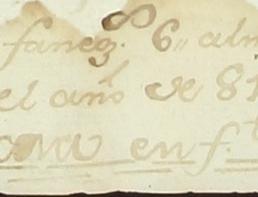 faneg.s 6,, alm
el año de 81
en f.t